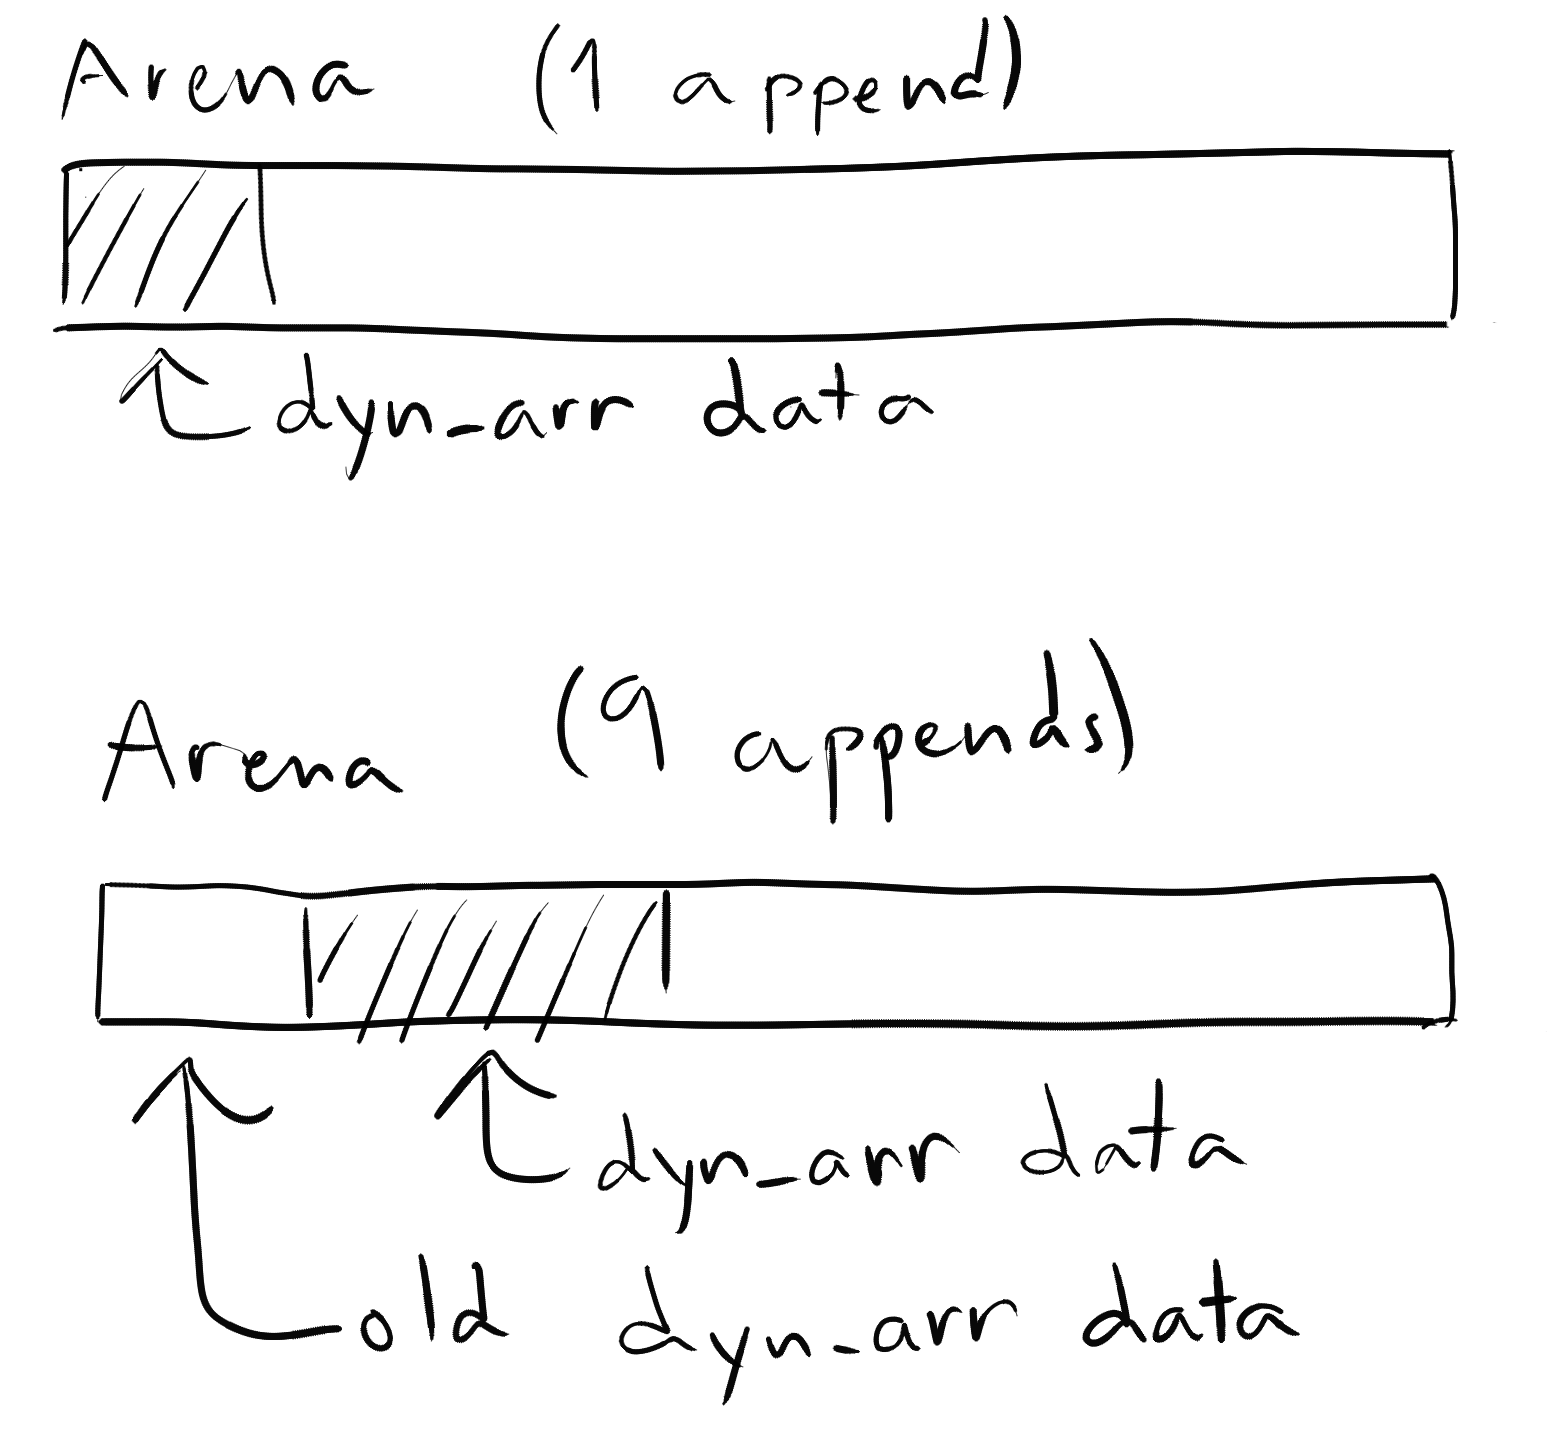 Arena (1 append)
dyn_arr data
Arena (9 appends)
dyn_arr data
old dyn_arr data